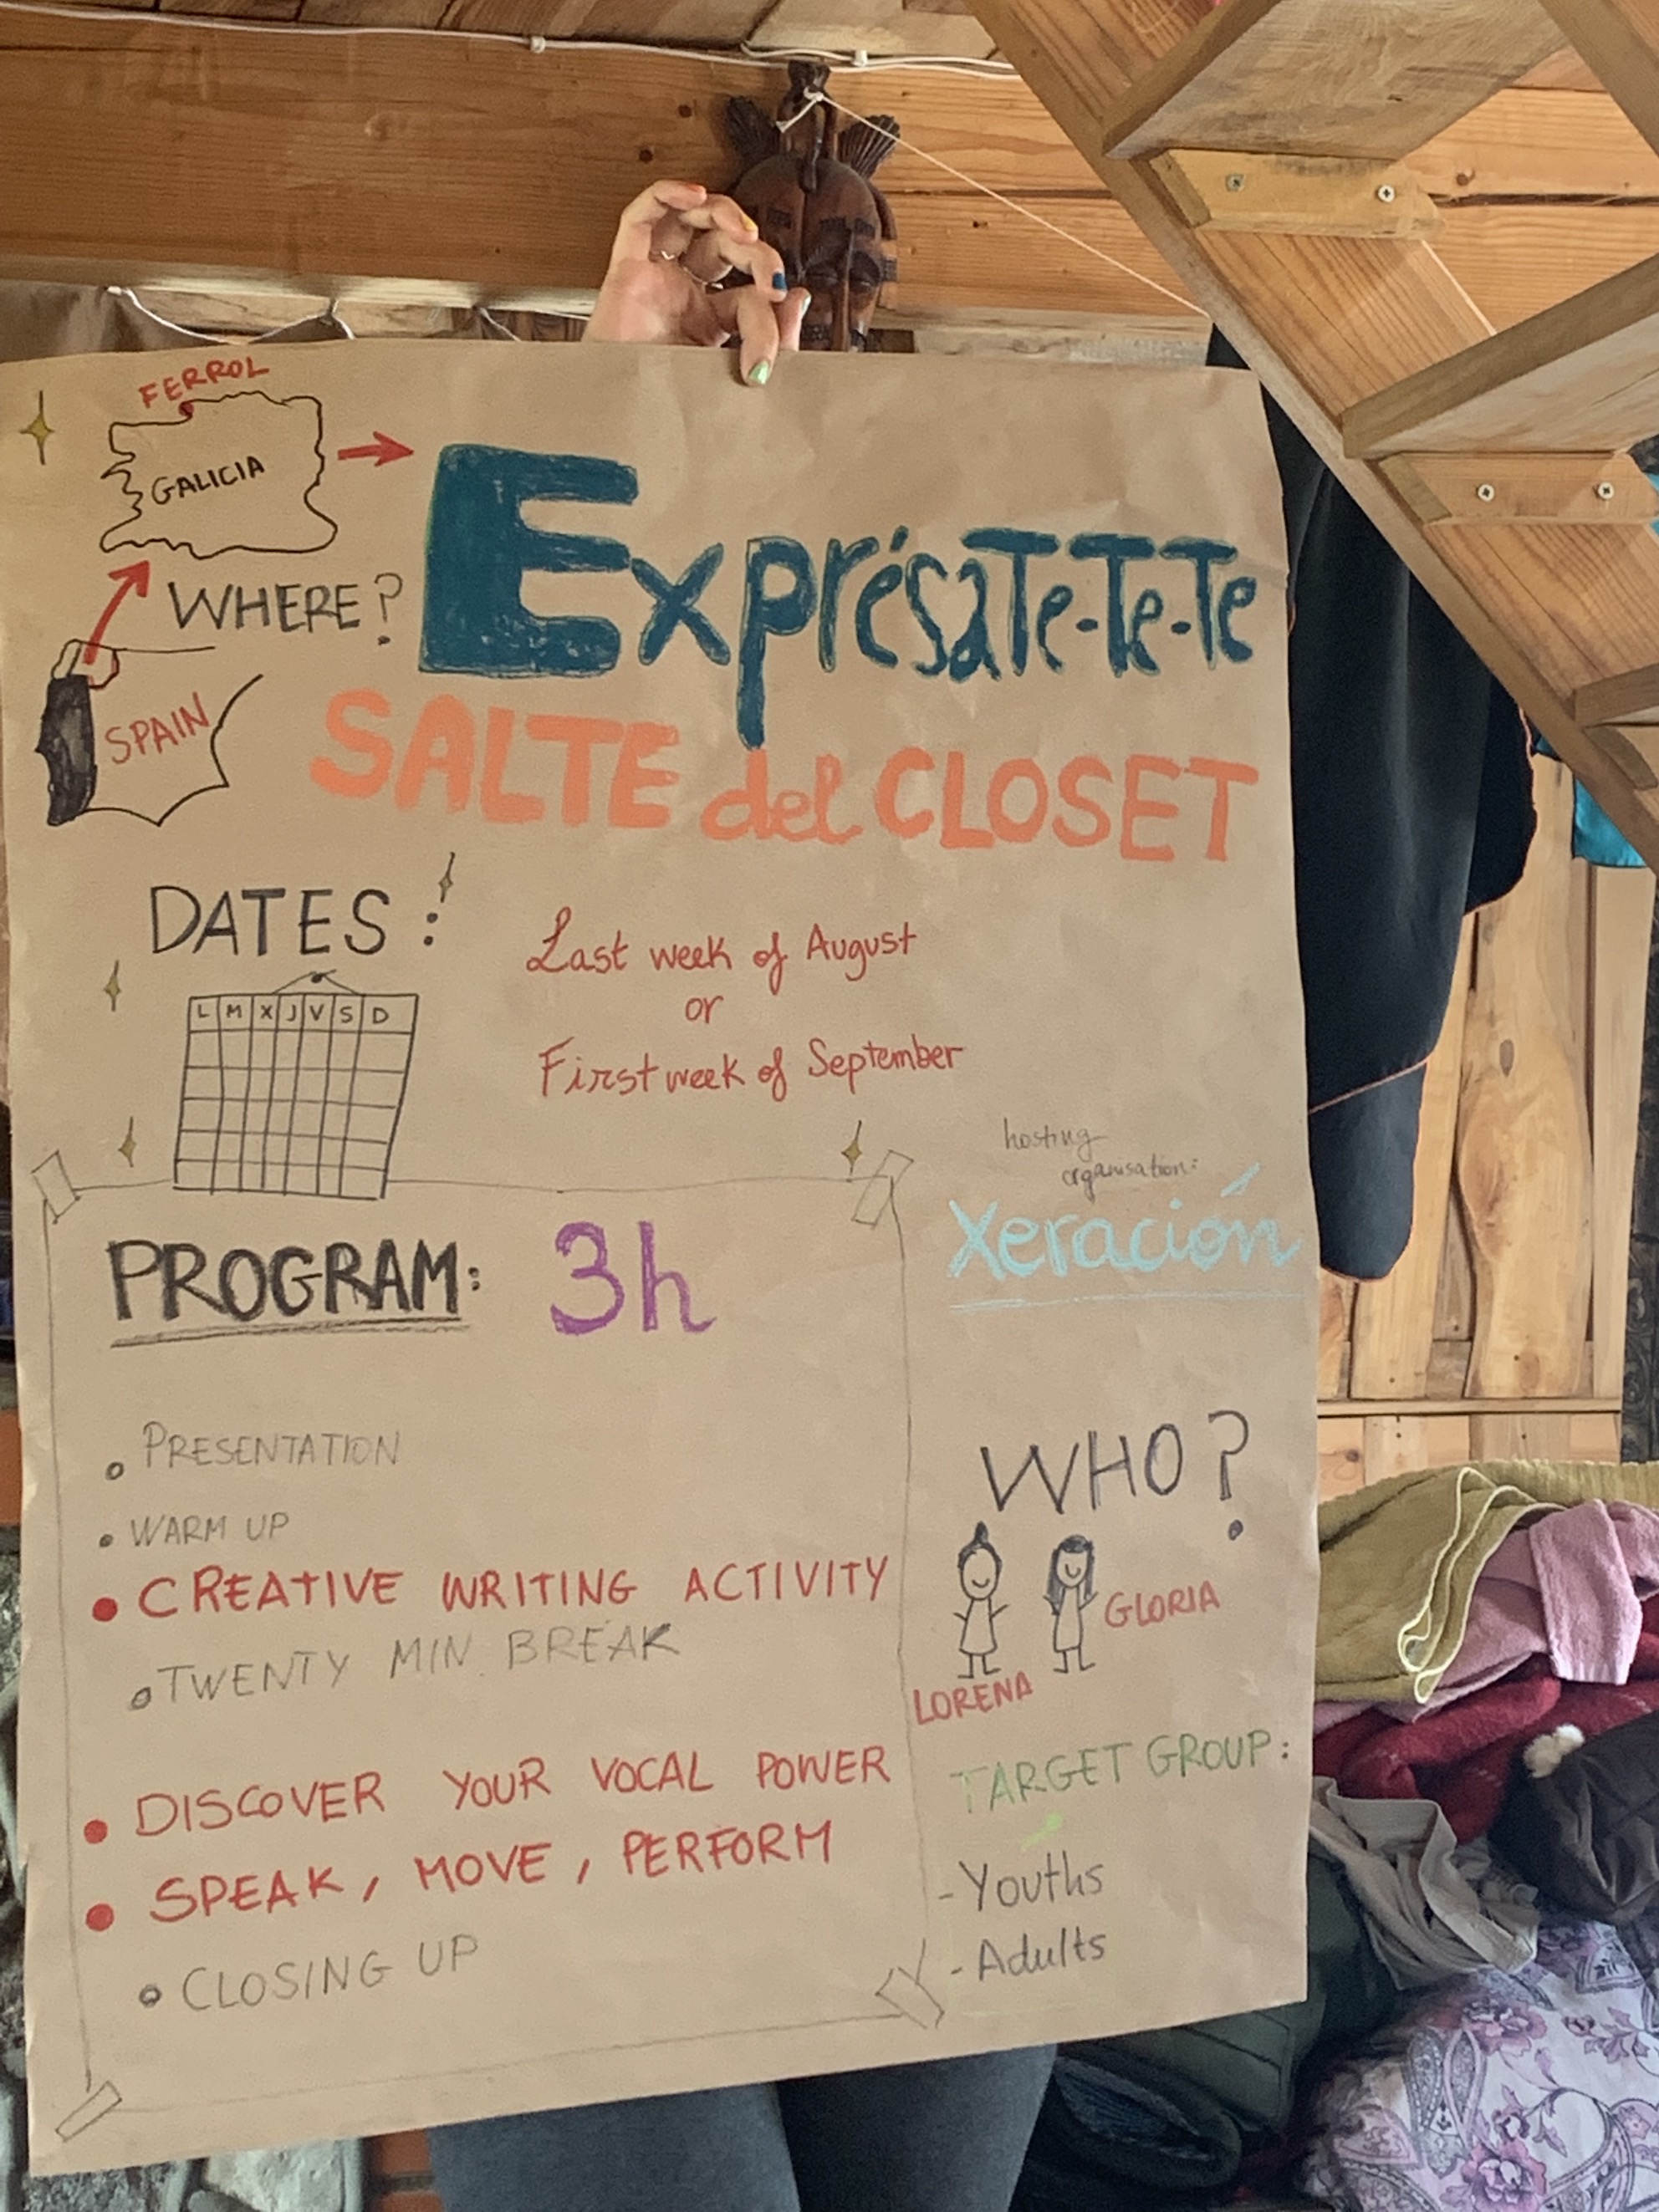 FERROL
GALICIA
WHERE?
SPAIN
Exprésate-Te-Te
SALTE del CLOSET
DATES:
L M X J V S D
Last week of August
or
First week of September
hosting
organisation:
Xeración
PROGRAM: 3h
• PRESENTATION
• WARM UP
• CREATIVE WRITING ACTIVITY
• TWENTY MIN. BREAK
• DISCOVER YOUR VOCAL POWER
• SPEAK, MOVE, PERFORM
• CLOSING UP
WHO?
GLORIA
LORENA
TARGET GROUP:
- Youths
- Adults